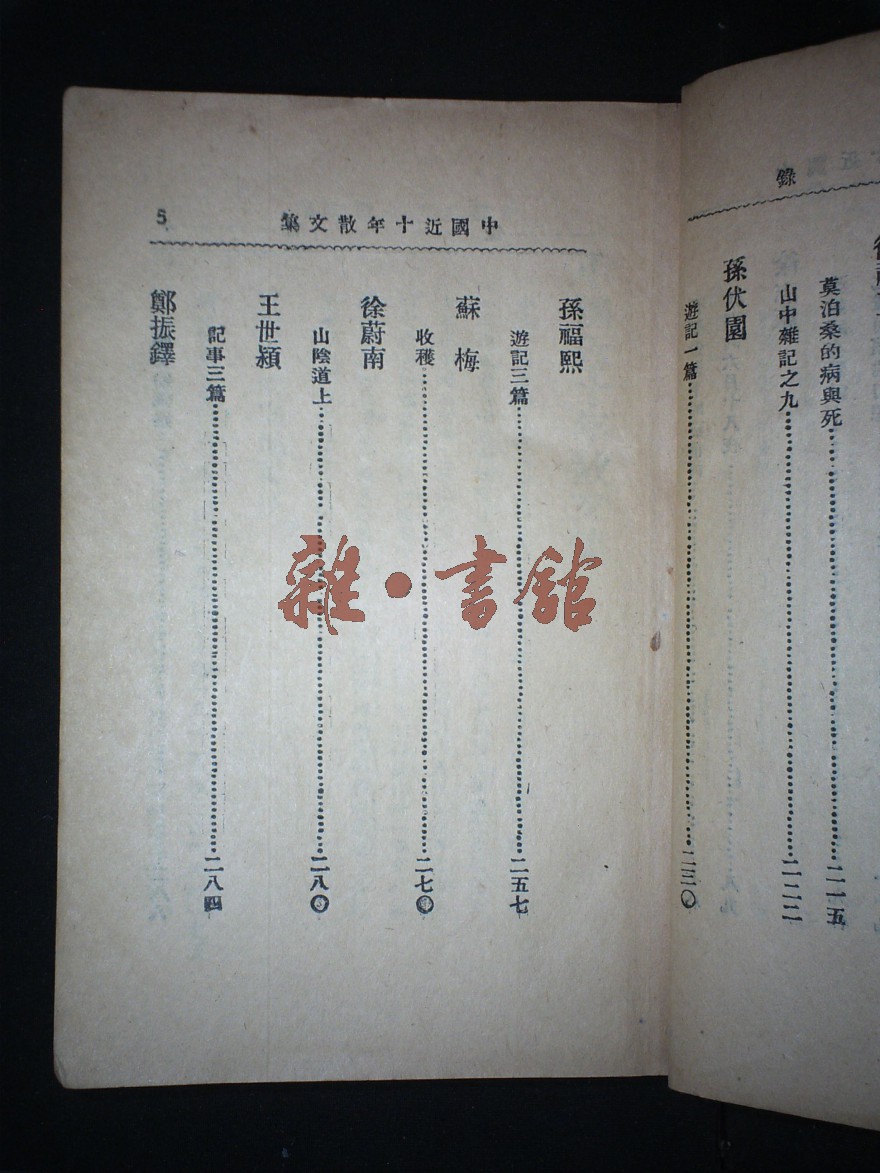 錄
莫泊桑的病與死……二一五
山中雜記之九……二二二
孫伏園
遊記一篇……二三〇
中國近十年散文集
5
孫福熙
遊記三篇……二五七
蘇梅
收穫……二七〇
徐蔚南
山陰道上……二八〇
王世穎
記事三篇……二八四
鄭振鐸
雜·書館